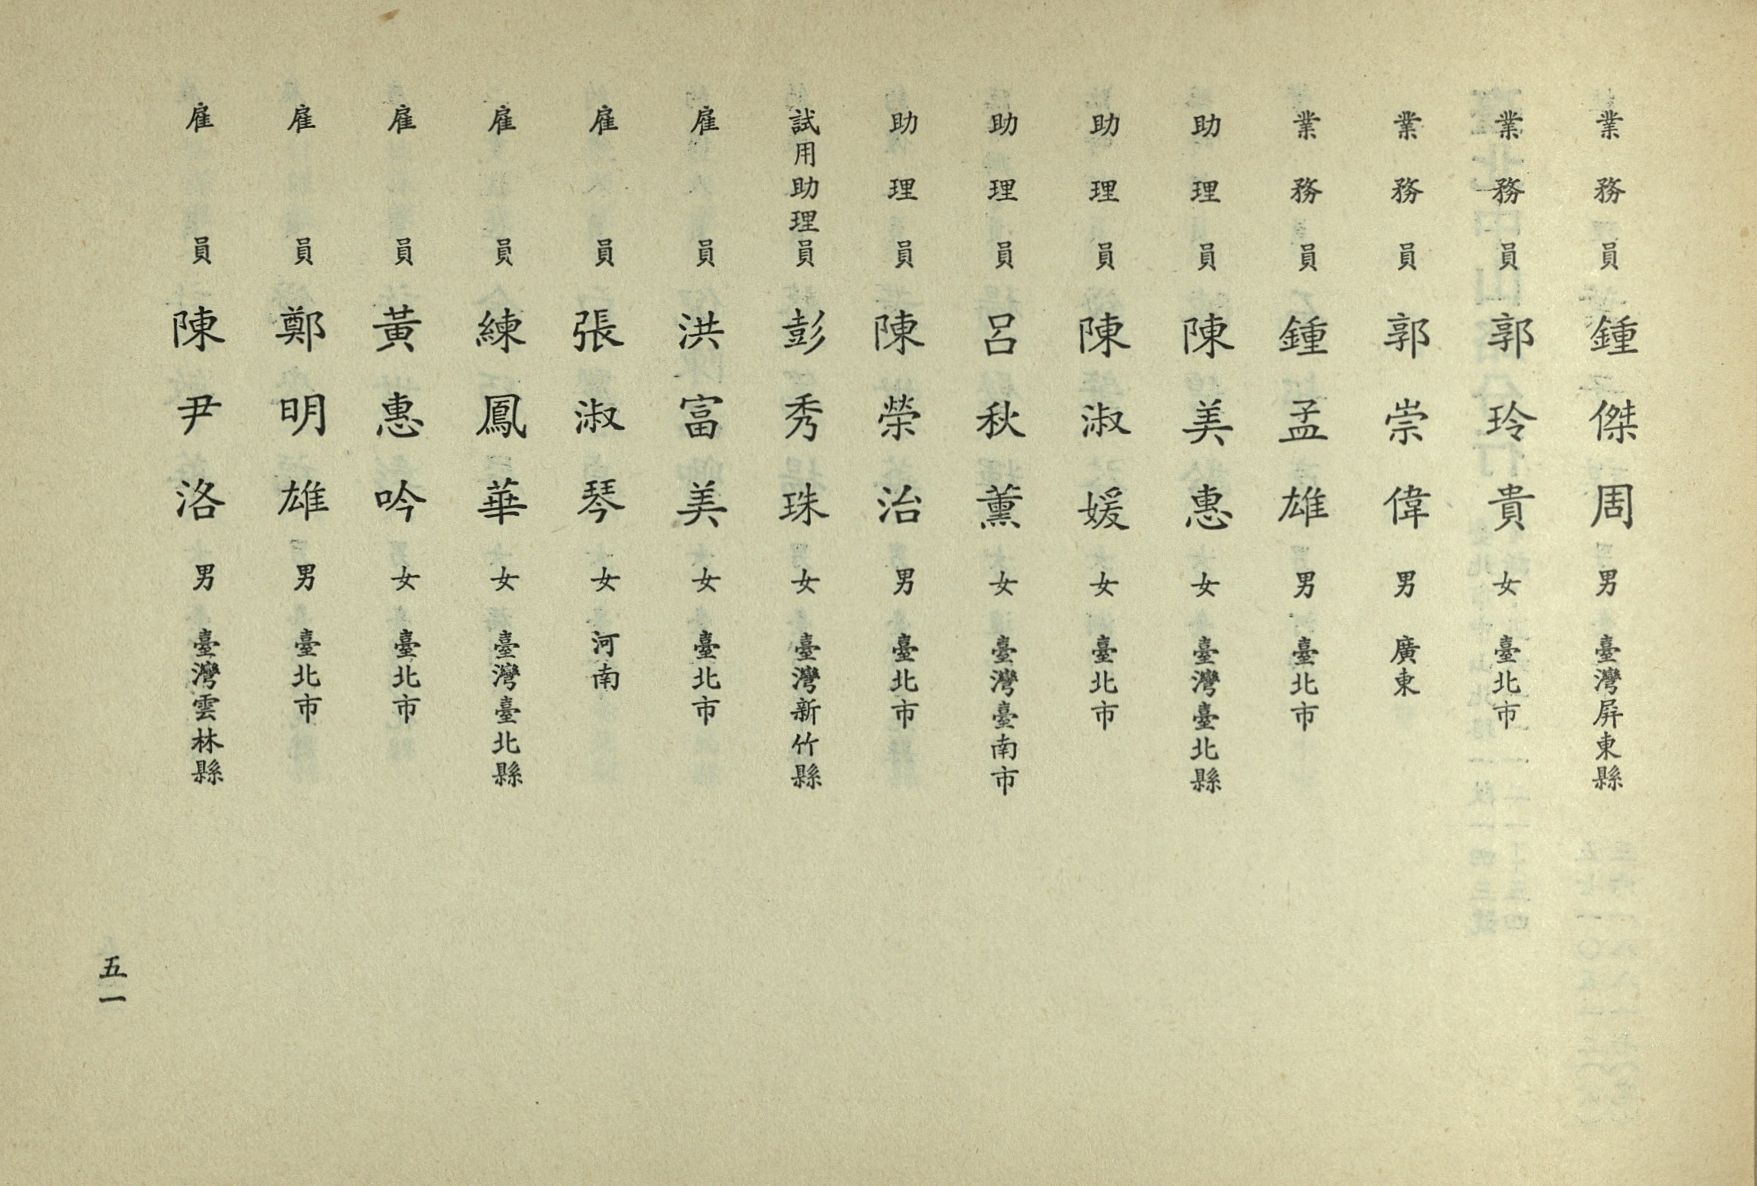 業務員 鍾傑周 男 臺灣屏東縣
業務員 郭玲貴 女 臺北市
業務員 郭崇偉 男 廣東
業務員 鍾孟雄 男 臺北市
助理員 陳美惠 女 臺灣臺北縣
助理員 陳淑媛 女 臺北市
助理員 呂秋薰 女 臺灣臺南市
助理員 陳榮治 男 臺北市
試用助理員 彭秀珠 女 臺灣新竹縣
雇員 洪富美 女 臺北市
雇員 張淑琴 女 河南
雇員 練鳳華 女 臺灣臺北縣
雇員 黃惠吟 女 臺北市
雇員 鄭明雄 男 臺北市
雇員 陳尹洛 男 臺灣雲林縣
五一